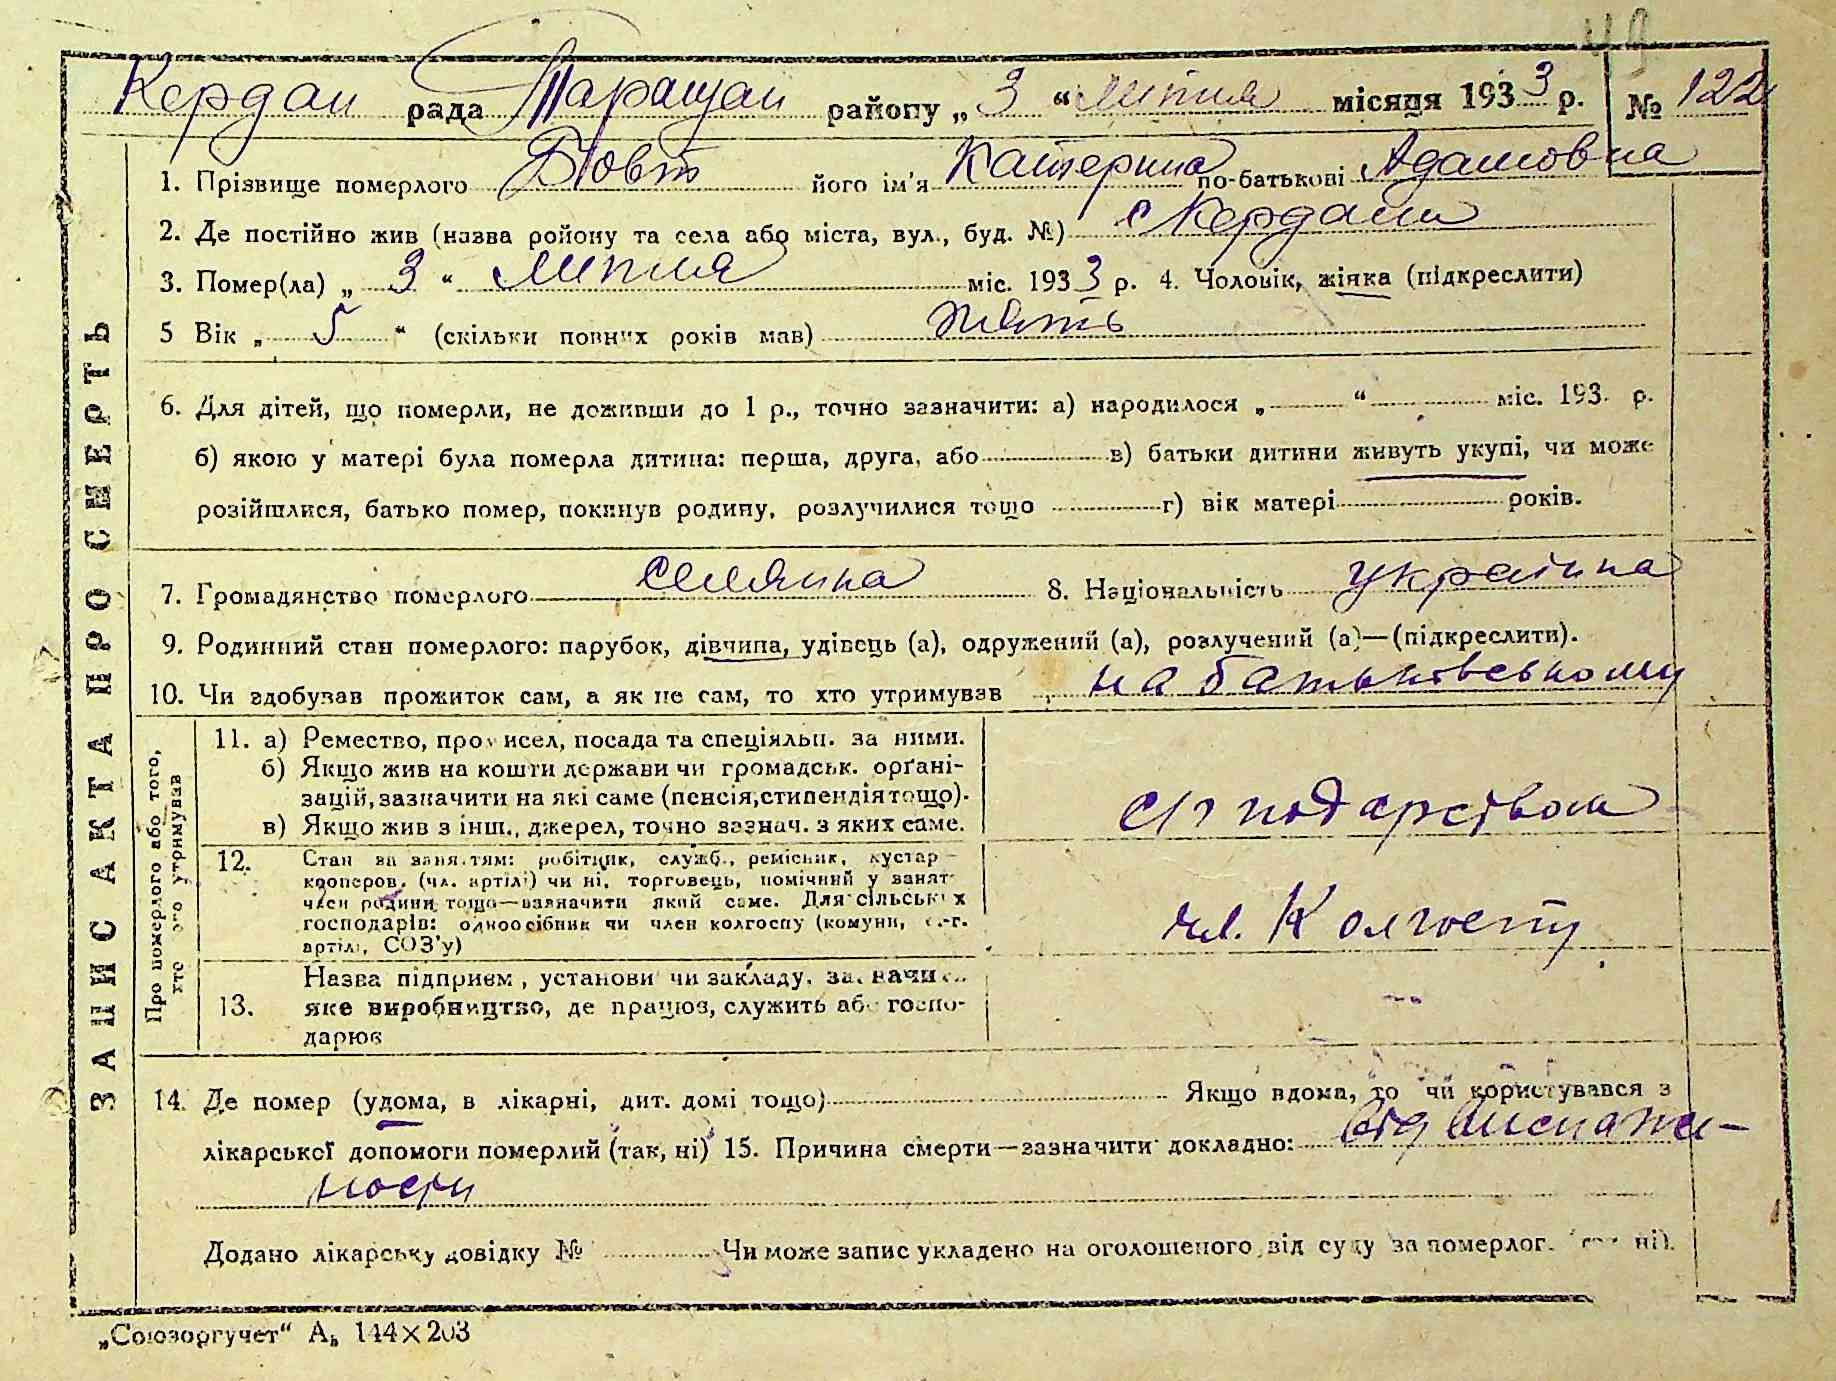 Кердан рада Таращан району „3“ липня місяця 1933 р. № 122
1. Прізвище померлого Бовт його ім'я Катерина по-батькові Адамовна
2. Де постійно жив (назва району та села або міста, вул., буд. №) с Кердани
3. Помер(ла) „3“ липня міс. 1933 р. 4. Чоловік, жінка (підкреслити)
5 Вік „5“ (скільки повних років мав) пять
6. Для дітей, що померли, не доживши до 1 р., точно зазначити: а) народилося „ “ міс. 193 р.
б) якою у матері була померла дитина: перша, друга, або в) батьки дитини живуть укупі, чи може
розійшлися, батько помер, покинув родину, розлучилися тощо г) вік матері років.
7. Громадянство померлого селянка 8. Національність україпка
9. Родинний стан померлого: парубок, дівчина, удівець (а), одружений (а), розлучений (а)—(підкреслити).
10. Чи здобував прожиток сам, а як не сам, то хто утримував на батьковському
ЗАПИС АКТА ПРО СМЕРТЬ
Про померлого або того, хто його утримував
11. а) Ремество, промисел, посада та спеціяльн. за ними.
б) Якщо жив на кошти держави чи громадськ. органі-
зацій, зазначити на які саме (пенсія, стипендія тощо).
в) Якщо жив з інш., джерел, точно зазнач. з яких саме.
с/г подарством
12. Стан за заняттям: робітник, служб., ремісник, кустар
кооперов. (чл. артілі) чи ні, торговець, помічний у занят
член родини тощо—зазначити який саме. Для сільських
господарів: одноосібник чи член колгоспу (комуни, с.-г.
артілі, СОЗ'у)
чл. Колгоспу
13. Назва підприєм, установи чи закладу, зазначи
яке виробництво, де працює, служить або госпо-
дарює
14. Де помер (удома, в лікарні, дит. домі тощо) Якщо вдома, то чи користувався з
лікарської допомоги померлий (так, ні) 15. Причина смерти—зазначити докладно: від виснаже-
ности
Додано лікарську довідку № Чи може запис укладено на оголошеного від суду за померлог. ні).
„Союзоргучет“ А„ 144×203